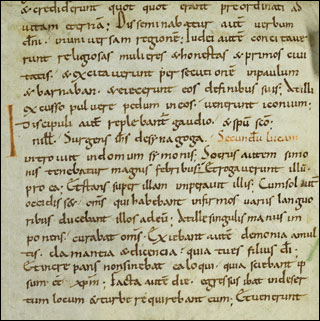 & crediderunt quot quot erant preordinati ad
uitam eternā; Disseminabatur autē uerbum
dn̄i. uniuersam regionē; Iudei autē concitaue
runt religiosas mulieres & honestas & primos ciui
tatis. & excitauerunt persecutionē in paulum
& barnaban. & eiecerunt eos de finibus suis; At illi
excusso puluere pedum in eos. uenerunt iconium;
Discipuli autē replebantur gaudio. & spū scō.
In ill. Surgens ihs de synagoga. Secundū lucam
introiuit in domum symonis; Socrus autem simo
nis tenebatur magnis febribus; Et rogauerunt illū
pro ea; Et stans super illam imperauit illi; Cum sol autē
occidisset. om̄s qui habebant infirmos uariis languo
ribus ducebant illos ad eū; At ille singulis manus im
ponens. curabat om̄s; Exiebant autē demonia a mul
tis. clamantia & dicentia. quia tu es filius dī;
Et increpans non sinebat ea loqui. quia sciebant ip
sum eē xpm; Facta autē die. egressus ibat in deser
tum locum & turbe requirebant eum; Et uenerunt